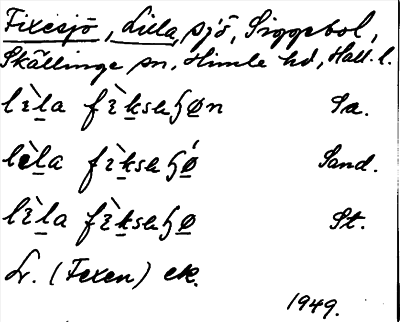 Fixesjö, Lilla, sjö, Siggebol,
Skällinge sn, Himle hd, Hall. l.
lìla fìksaɧøn Sa.
lèla fìksaɧǿ Sand.
lìla fìksaɧø St.
Lr. (Fexen) ek.
1949.